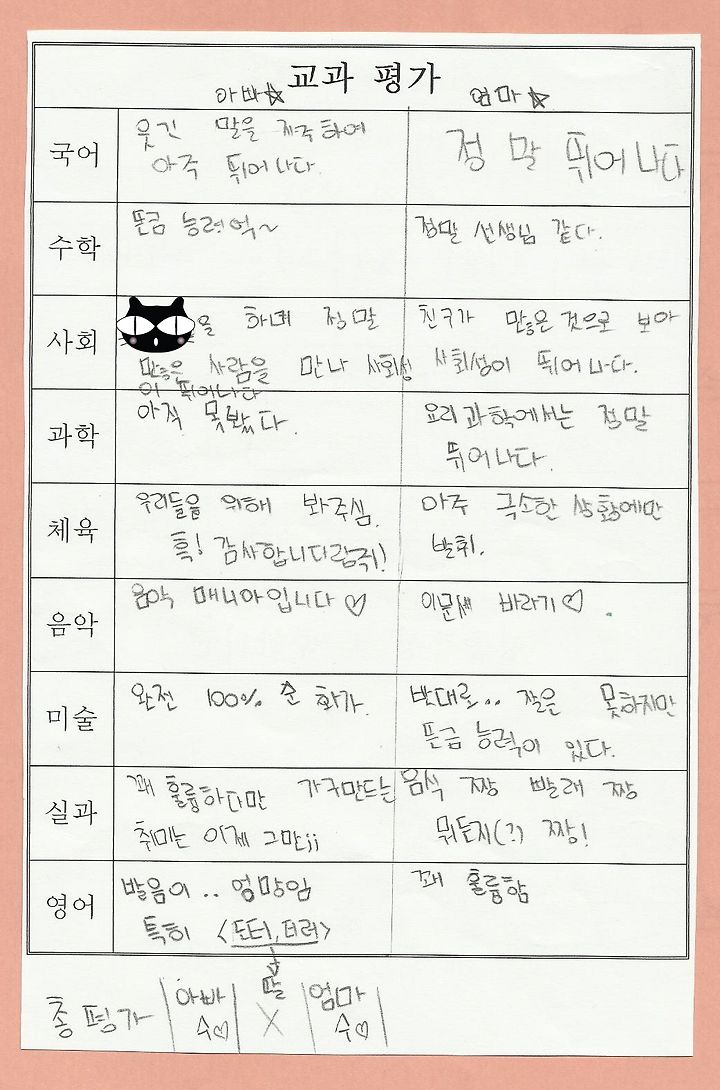 교과 평가
아빠☆ 엄마☆
국어
웃긴 말을 자주하여
아주 뛰어나다.
정말 뛰어나다
수학
뜬금 능력억~
정말 선생님 같다.
사회
을 하며 정말
많은 사람을 만나 사회성
이 뛰어나다
친구가 많은것으로 보아
사회성이 뛰어나다.
과학
아직 못봤다.
요리과학에서는 정말
뛰어나다.
체육
우리들을 위해 봐주심.
흑! 감사합니다람쥐!
아주 극소한 상황에만
발휘.
음악
음악 매니아입니다♡
이문세 바라기♡.
미술
완전 100% 순 화가.
반대로.. 잘은 못하지만
뜬금 능력이 있다.
실과
꽤 훌륭하다만 가구만드는
취미는 이제 그만;;
음식 짱 빨래 짱
뭐든지(?) 짱!
영어
발음이.. 엉망임
특히 <도터,터러>
꽤 훌륭함
딸
총 평가 아빠 수♡ X 엄마 수♡